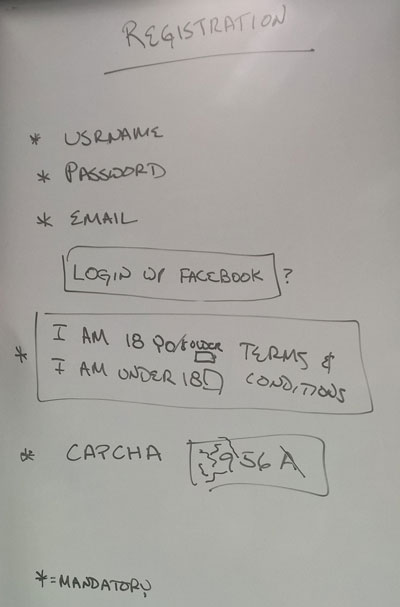 REGISTRATION
* USRNAME
* PASSWORD
* EMAIL
LOGIN W/ FACEBOOK ?
* I AM 18 OLDER TERMS &
I AM UNDER 18 CONDITIONS
* CAPCHA 956A
*=MANDATORY